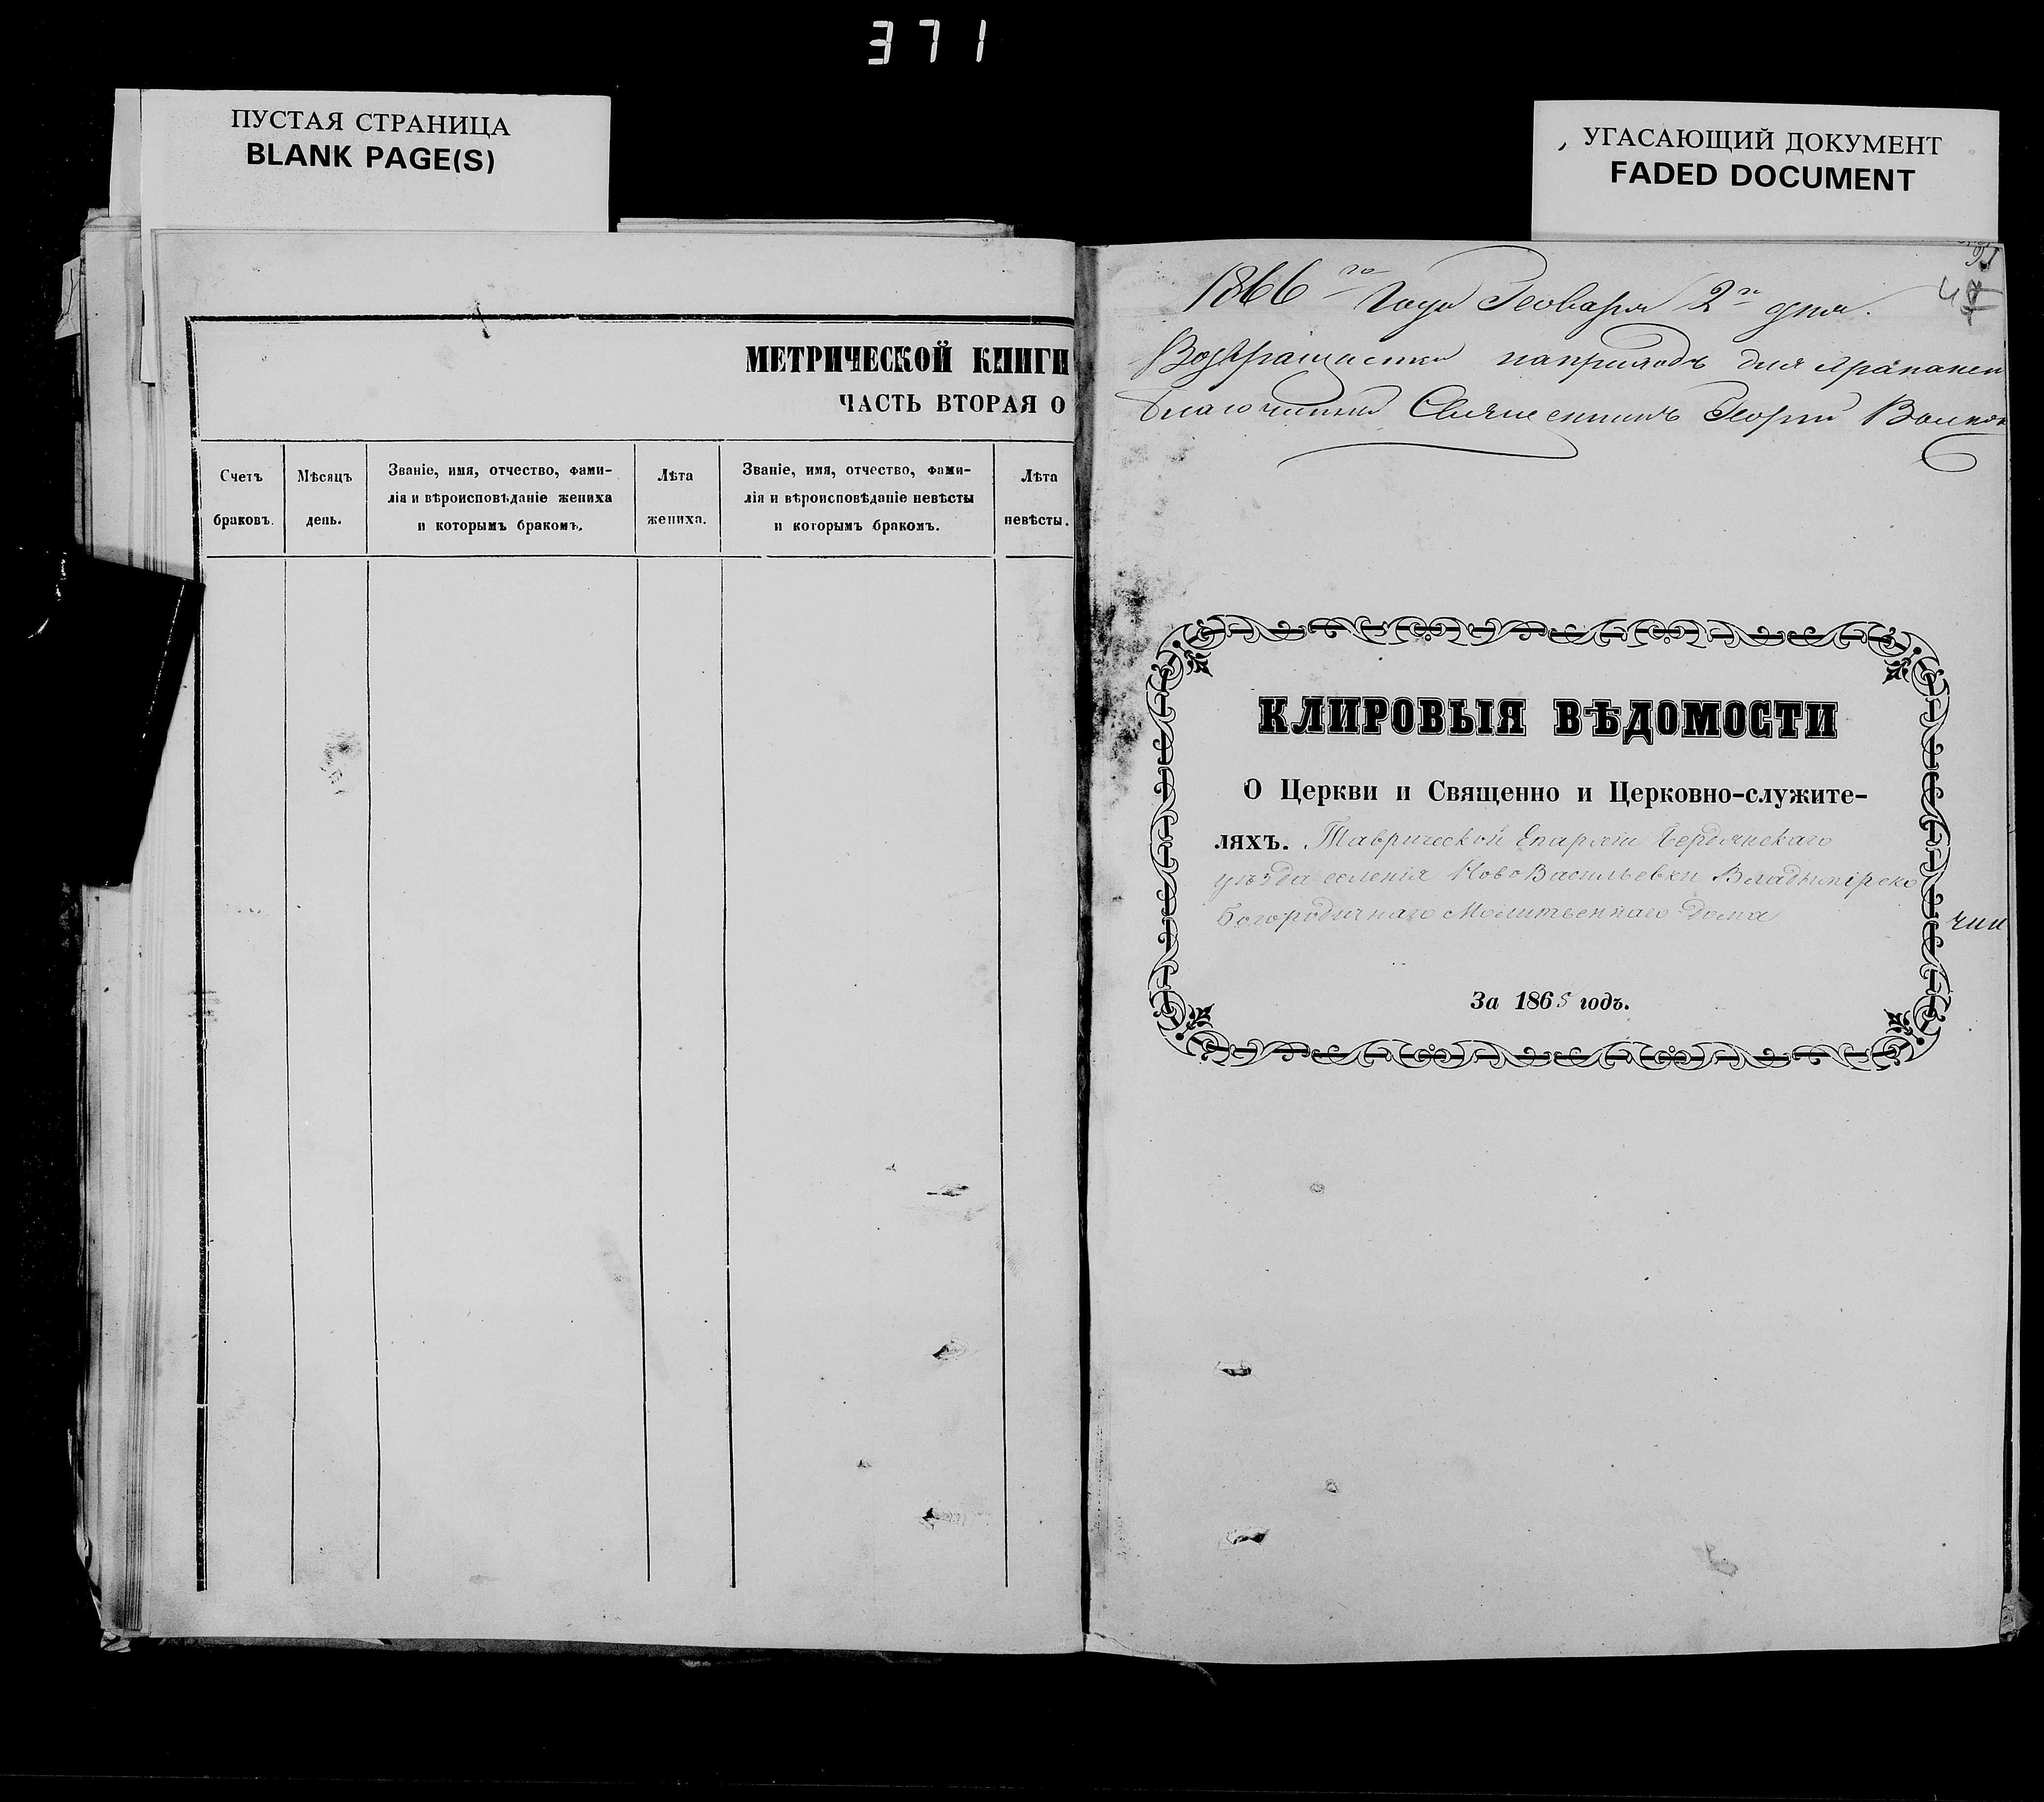 371
ПУСТАЯ СТРАНИЦА
BLANK PAGE(S)
МЕТРИЧЕСКОЙ КНИГИ
ЧАСТЬ ВТОРАЯ О
Счетъ
браковъ.
Мѣсяцъ
день.
Званіе, имя, отчество, фами-
лія и вѣроисповѣданіе жениха
и которымъ бракомъ.
Лѣта
жениха.
Званіе, имя, отчество, фами-
лія и вѣроисповѣданіе невѣсты
и которымъ бракомъ.
Лѣта
невѣсты.
УГАСАЮЩИЙ ДОКУМЕНТ
FADED DOCUMENT
1866 го Года Генваря 2 го дня.
Возвращается на приходъ для храненія
Благочинный Священникъ Георгій
КЛИРОВЫЯ ВѢДОМОСТИ
О Церкви и Священно и Церковно-служите-
ляхъ. Таврической Епархіи Бердянскаго
уѣзда селенія Ново Васильевки Владимірско
Богородичнаго Молитвеннаго Дома
чин
За 1865 годъ.